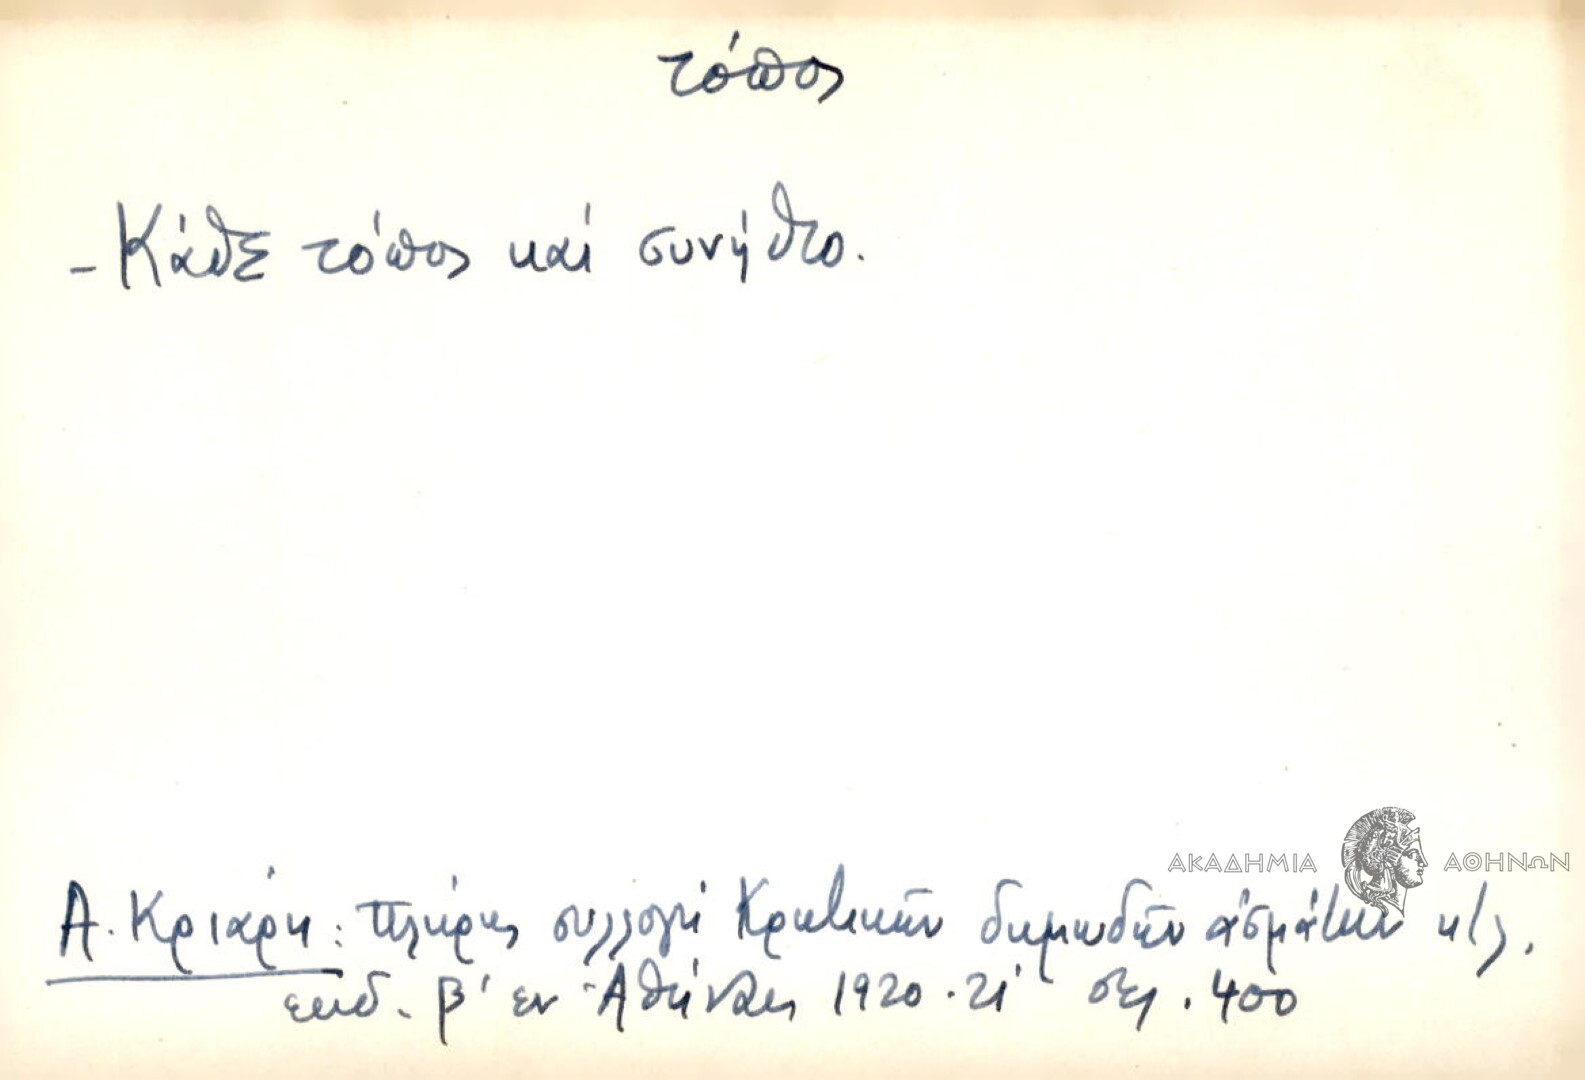 τόπος
- Κάθε τόπος καί συνήθιο.
ΑΚΑΔΗΜΙΑ ΑΘΗΝΩΝ
Α. Κριάρη: Πλήρης συλλογή Κρητικών δημωδών ασμάτων κτλ.
εκδ. β' εν Αθήναις 1920 - 21 σελ. 400